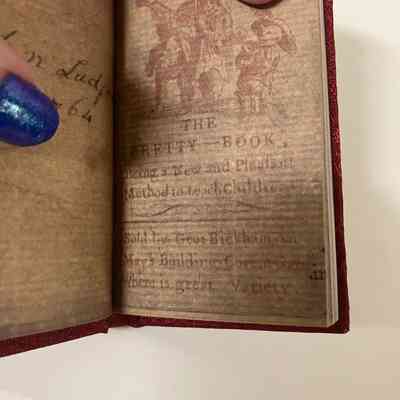 n Ludg
64
THE
PRETTY—BOOK,
Being a New and Pleasant
Method to teach Children
Sold by Geo: Bickham in
May's Buildings Covent
Where is great Variety